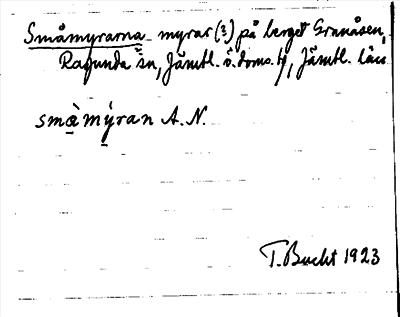 Småmyrarna myrar (?) på berget Granåsen,
Ragunda sn, Jämtl. ö. doms. tj, Jämtl. län
smàmýran A.N.
T. Bucht 1923